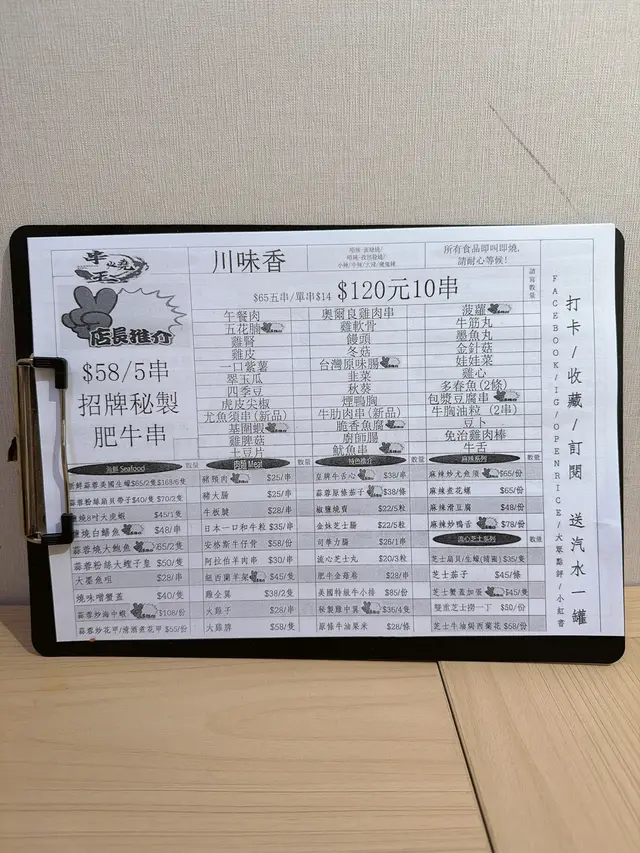 川味香
所有食品即叫即燒,
請耐心等候!
$65五串/單串$14 $120元10串
店長推介
$58/5串
招牌秘製
肥牛串
午餐肉
五花腩
雞腎
雞皮
一口紫薯
翠玉瓜
四季豆
虎皮尖椒
尤魚須串(新品)
基圍蝦
雞脾菇
土豆片
奧爾良雞肉串
雞軟骨
饅頭
冬菇
台灣原味腸
韭菜
秋葵
煙鴨胸
牛肋肉串(新品)
脆香魚腐
廚師腸
魷魚串
菠蘿
牛筋丸
墨魚丸
金針菇
娃娃菜
雞心
多春魚(2條)
包漿豆腐串
牛胸油粒 (2串)
豆卜
免治雞肉棒
牛舌
海鮮 Seafood 數量
新鮮蒜蓉美國生蠔$65/2隻$168/6隻
蒜蓉粉絲扇貝帶子$40/隻 $70/2隻
鹽燒8吋大虎蝦 $45/1隻
鹽燒白鱔魚 $48/串
蒜蓉燒大鮑魚 $65/2隻
蒜蓉粉絲大蟶子皇 $50/隻
大墨魚咀 $28/串
燒味噌蟹蓋 $40/隻
蒜蓉炒海中蝦 $108/份
蒜蓉炒花甲/清酒煮花甲 $55/份
肉類 Meat 數量
豬頸肉 $25/串
豬大腸 $25/串
牛板腱 $28/串
日本一口和牛粒 $35/串
安格斯牛仔骨 $58/份
阿拉伯羊肉串 $30/串
紐西蘭羊架 $45/隻
雞全翼 $38/2隻
火雞子 $28/串
火雞髀 $58/隻
特色推介 數量
皇牌牛舌心 $38/串
蒜蓉原條茄子 $38/條
椒鹽燒寶 $22/5粒
金妹芝士腸 $22/5粒
司華力腸 $25/1串
流心芝士丸 $20/3粒
肥牛金菇卷 $28/串
美國特級牛小排 $85/份
秘製雞中翼 $36/4隻
原條牛油粟米 $28/條
麻辣系列 數量
麻辣炒尤魚須 $65/份
麻辣煮花螺 $65/份
麻辣滑豆腐 $48/份
麻辣炒鴨舌 $78/份
流心芝士系列 數量
芝士茄子 $45/條
芝士蟹蓋加蛋 $45/隻
雙重芝士撈一丁 $50/份
芝士牛油焗西蘭花 $58/份
請寫數量
打卡/收藏/訂閱 送汽水一罐
FACEBOOK/IG/OPENRICE/大眾點評/小紅書